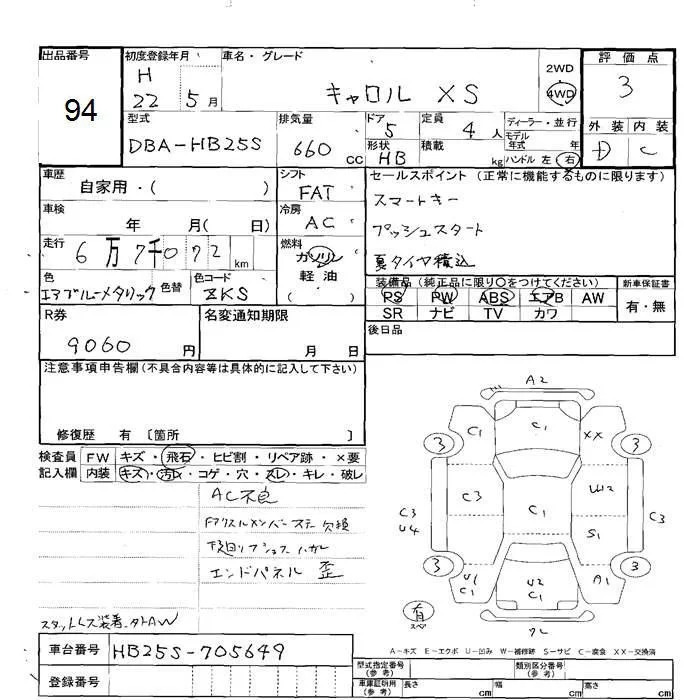 出品番号
94
初度登録年月
H
22 5 月
車名・グレード
キャロル XS
2WD
4WD
評価点
3
型式
DBA-HB25S
排気量
660 CC
ドア
5
形状
HB
定員
4 人
積載
kg
ディーラー・並行
モデル
年式 年
ハンドル 左 右
外装 内装
D C
車歴
自家用・( )
シフト
FAT
セールスポイント (正常に機能するものに限ります)
スマートキー
プッシュスタート
夏タイヤ積込
車検
年 月( 日)
冷房
AC
走行
6万7千072 km
燃料
ガソリン
軽油
( )
色
エアブルーメタリック
色替
色コード
ZKS
装備品 (純正品に限り○をつけてください)
PS PW ABS エアB AW
SR ナビ TV カワ
新車保証書
有・無
R券
9060 円
名変通知期限
月 日
後日品
注意事項申告欄(不具合内容等は具体的に記入して下さい)
修復歴 有 〔箇所 〕
検査員
記入欄
FW キズ・飛石・ヒビ割・リペア跡・×要
内装 キズ・汚れ・コゲ・穴・スレ・キレ・破レ
AC不良
欠損
下回り
エンドパネル 歪
A2
C1
C1
XX
3
3
C3
U4
C3
C1
W2
S1
C3
3
3
U1
C1
U2
C1
A1
有
スペア
A-キズ E-エクボ U-凹み W-補修跡 S-サビ C-腐食 XX-交換済
車台番号
HB25S-705649
登録番号
型式指定番号
(参考)
類別区分番号
(参考)
車庫証明用
(参考)
長さ cm
幅 cm
高さ cm